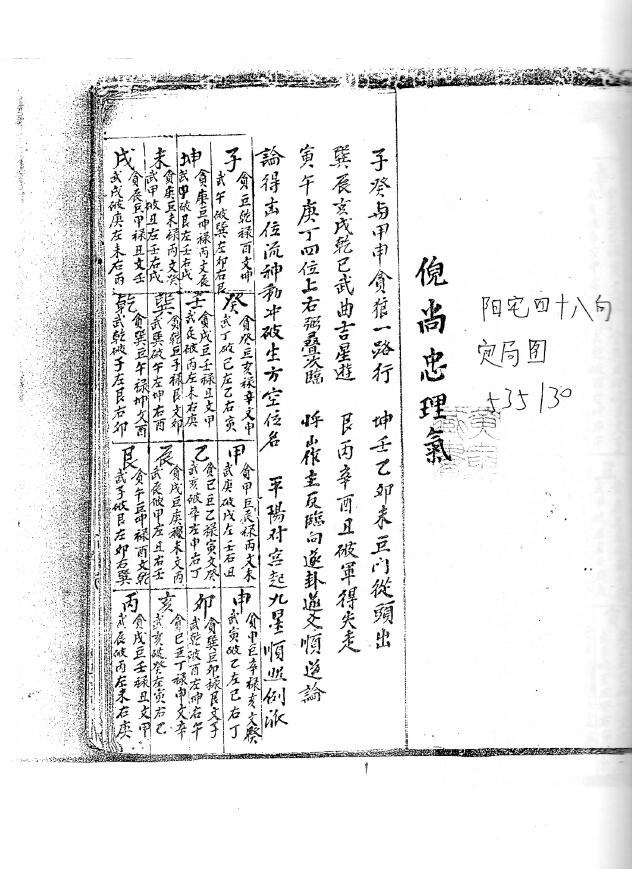 阳宅四十八句
定局图
535/30
倪尚忠理氣
子癸与甲申貪狼一路行 坤壬乙卯未巨门從頭出
巽辰亥戌乾巳武曲吉星遊 艮丙辛酉丑破軍得失走
寅午庚丁四位上右弼叠次臨 將山作主反臨向遂卦遊爻順逆論
論得出位流神 冲破生方空位名 平陽对宫起九星順照例派
子
貪巨乾禄酉文坤
武午破巽左卯右艮
坤
貪庚巨坤禄丙文辰
武申破艮左壬右戌
未
貪庚巨未禄丙文
武甲破丑左壬右戌
戌
貪辰巨甲禄丑文壬
武戌破庚左未右丙
癸
貪癸巨亥禄辛文申
武丁破巳左乙右寅
壬
貪戌巨壬禄丑文甲
武辰破丙左未右庚
巽
貪乾巨子禄艮文卯
武巽破午左坤右酉
乾
貪巽巨午禄坤文酉
武乾破子左艮右卯
甲
貪甲巨辰禄丙文未
武庚破戌左壬右丑
乙
貪巳巨乙禄寅文癸
武亥破辛左申右丁
辰
貪戌巨庚禄未文丙
武辰破甲左丑右壬
艮
貪午巨坤禄酉文乾
武子破艮左卯右巽
申
貪申巨辛禄亥文癸
武寅破乙左巳右丁
卯
貪巽巨卯禄艮文子
武乾破酉左坤右午
亥
貪巳巨丁禄申文辛
武亥破癸左寅右乙
丙
貪戌巨壬禄丑文甲
武辰破丙左未右庚
1